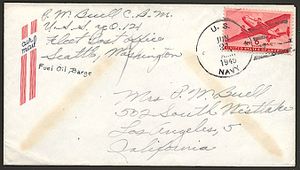 P. M. Buell C.B.M.
U.S.S. YO. 124
Fleet Post Office
Seattle, Washington
Fuel Oil Barge
air
mail
U. S.
JUN
1945
NAVY
Mrs P. M. Buell
502 South Westlake
Los Angeles, 5
California